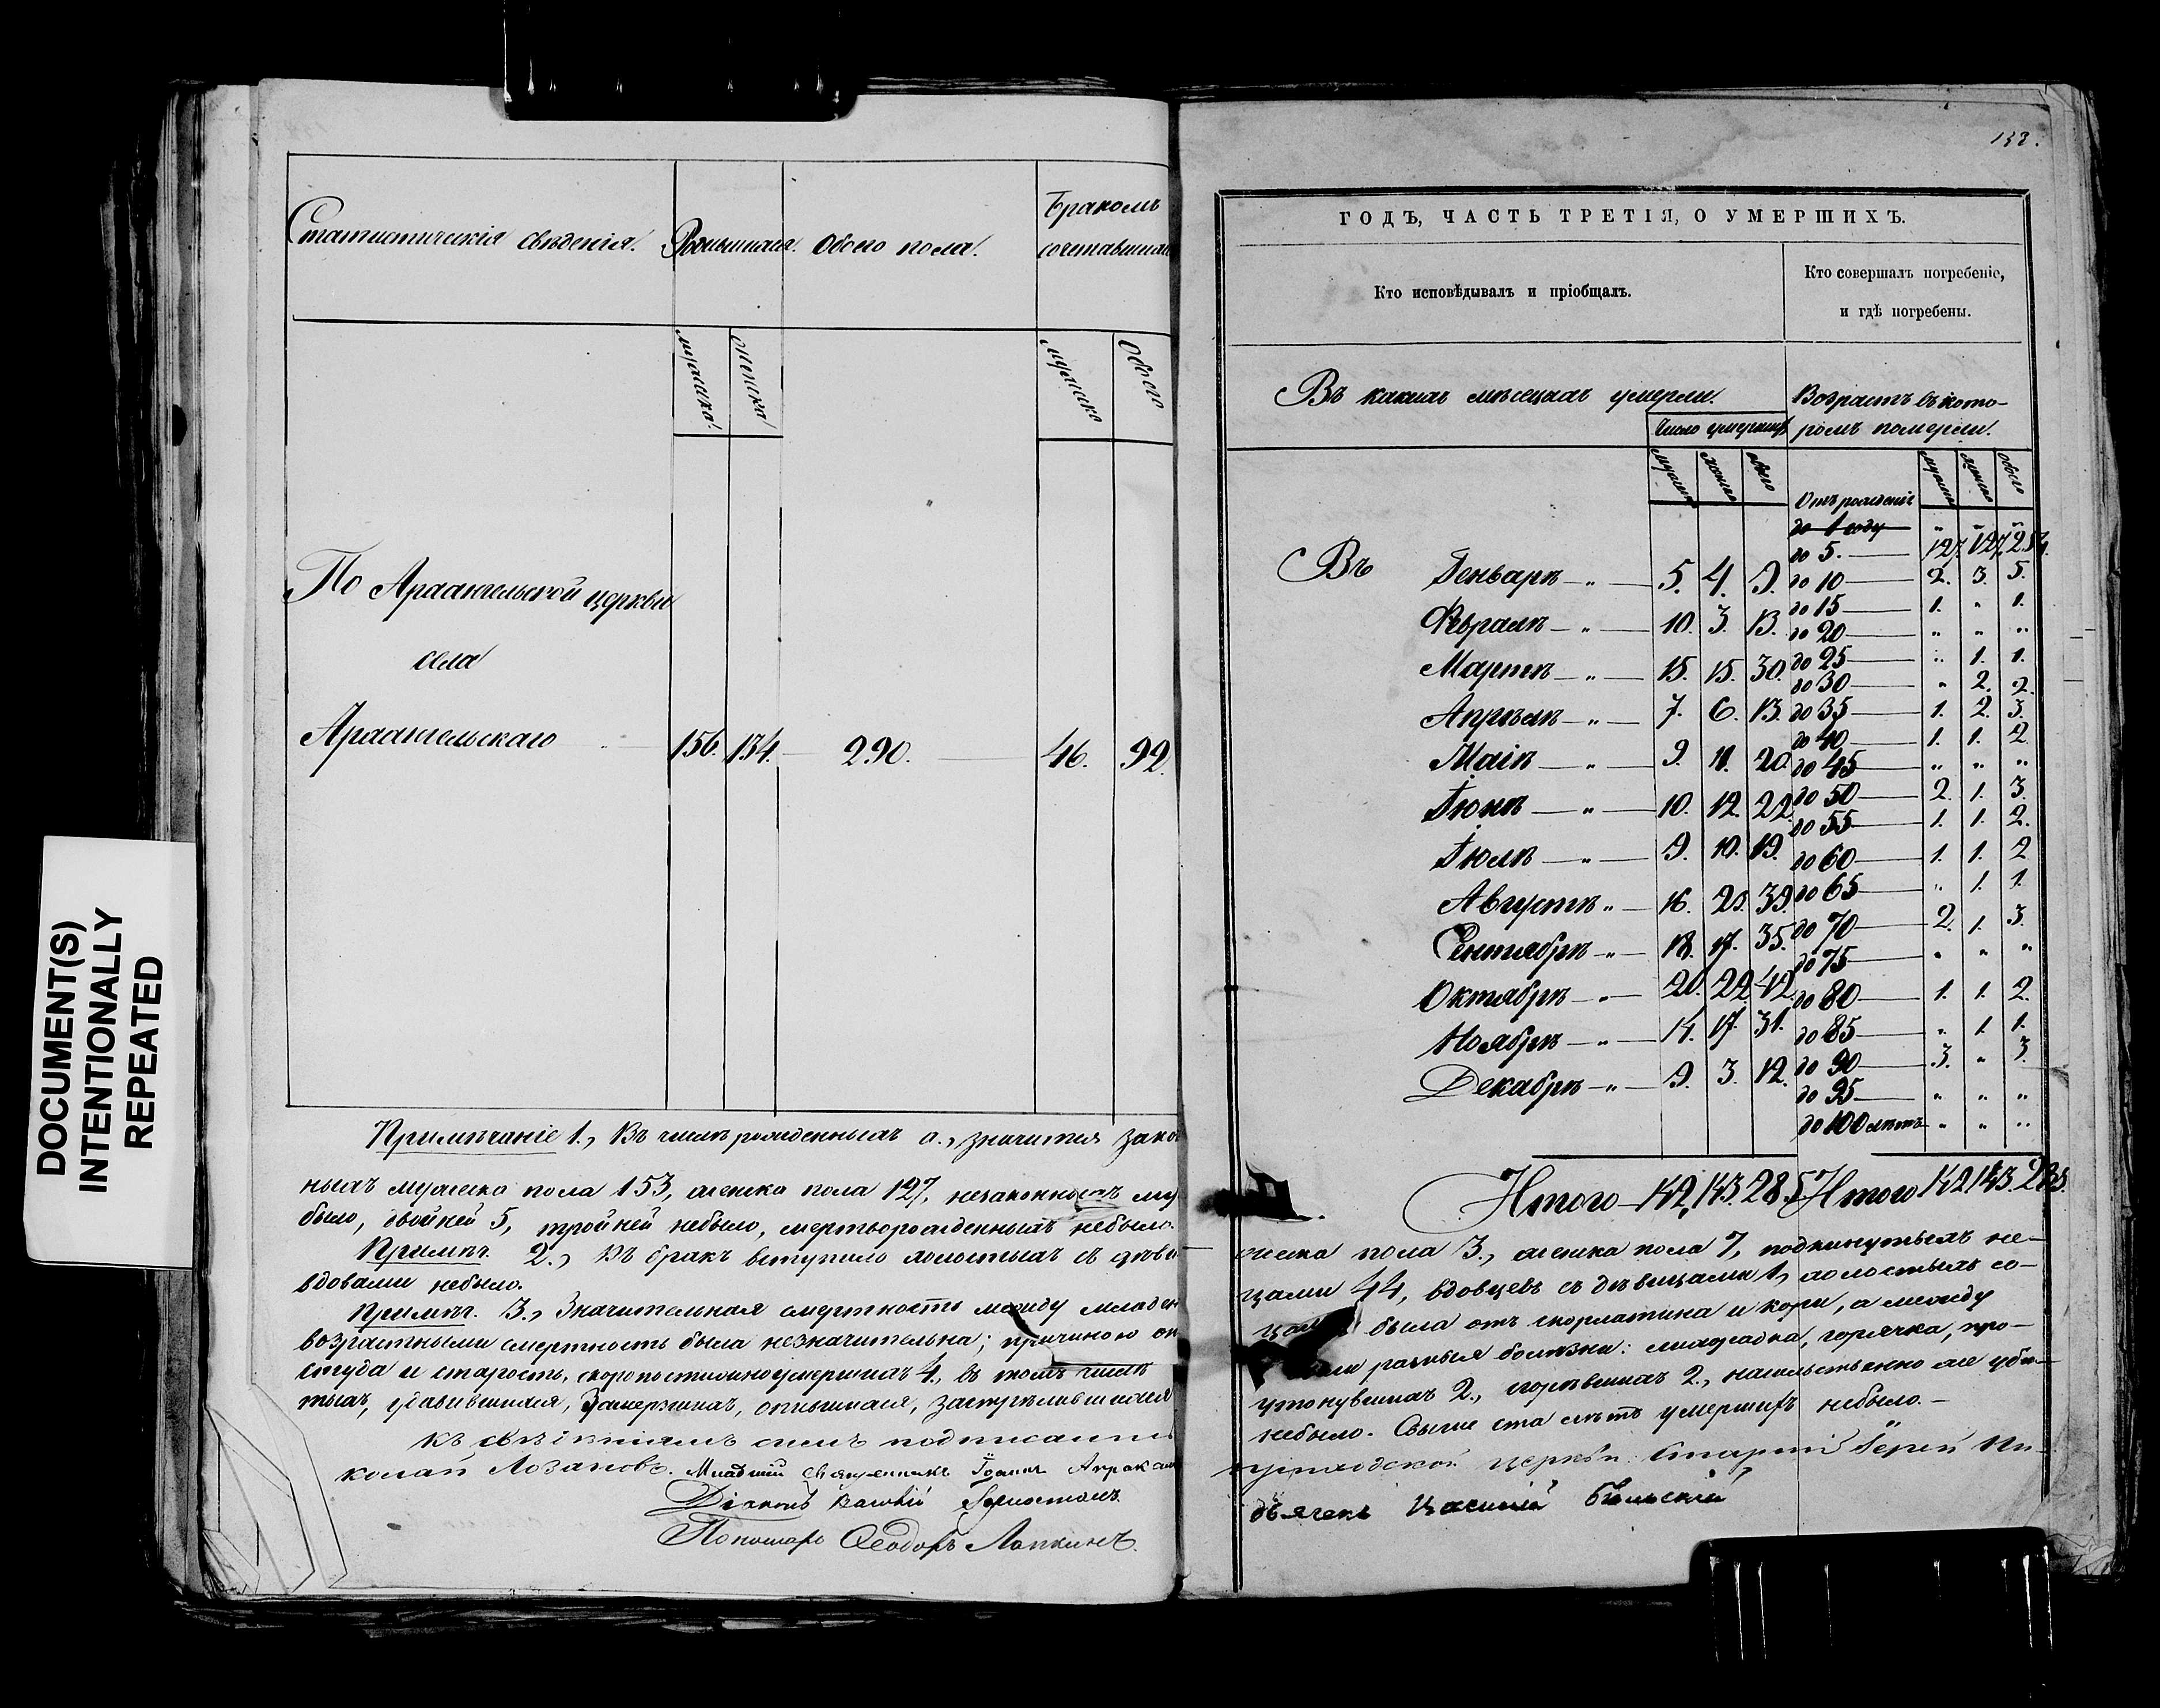 DOCUMENT(S)
INTENTIONALLY
REPEATED
Статистическія свѣденія. Родившихся. Обоего пола. Бракомъ
сочетавших
мужска женска мужска обоего
По Архангельской церкви
села
Архангельскаго 156. 134. 290. 46. 92.
Примѣчаніе 1., Въ числѣ рожденныхъ а., значится зако
ныхъ мужска пола 153, женска пола 127, незаконность му
было, двойней 5, тройней небыло, мертворожденныхъ небыло.
Примѣч. 2., Въ бракъ вступило холостыхъ съ дѣви
вдовами небыло.
Примѣч. 3., Значительная смертность между младен
возрастными смертность была незначительна; причиною
студа и старость, скоропостижноумершихъ 4., въ томъ числѣ
тыхъ, удавившихся, Замерзшихъ, опившихся, застрѣлившихся
Къ симъ подписались
колай Лозановъ. Младшій священникъ Іоаннъ
Діаконъ
Пономарь Ѳеодоръ Лапкинъ.
138.
ГОДЪ, ЧАСТЬ ТРЕТІЯ, О УМЕРШИХЪ.
Кто исповѣдывалъ и пріобщалъ. Кто совершалъ погребеніе,
и гдѣ погребены.
Въ какихъ мѣсецахъ умерли. Возрастъ въ кото-
Число умершихъ ромъ померли.
мужска женска обоего мужска женска обоего
Отъ рожденія
до 1 году " " "
до 5. 127. 127. 254.
Въ Генварѣ " 5. 4. 9. до 10 2. 3. 5.
до 15 1. " 1.
Февралѣ " 10. 3. 13. до 20 " " "
Мартѣ " 15. 15. 30. до 25 " 1. 1.
до 30 " 2. 2.
Апрѣлѣ " 7. 6. 13. до 35 1. 2. 3.
до 40 1. 1. 2.
Маіѣ " 9. 11. 20. до 45 " " "
Іюнѣ " 10. 12. 22. до 50 2. 1. 3.
до 55 1. 1. 2.
Іюлѣ " 9. 10. 19. до 60 1. 1. 2
Августѣ " 16. 23. 39. до 65 " 1. 1.
Сентябрѣ " 18. 17. 35. до 70 2. 1. 3.
до 75 " " "
Октябрѣ " 20. 22. 42. до 80 1. 1. 2.
Ноябрѣ " 14. 17. 31. до 85 " 1. 1.
Декабрѣ " 9. 3. 12. до 90 3. " 3.
до 95 " " "
до 100 лѣтъ " " "
Итого 142, 143. 285 Итого 142 143. 285.
жеска пола 3., женска пола 7, подкинутыхъ не-
цами 44, вдовцевъ съ дѣвицами 1, холостыхъ со
была отъ скорлатина и кори, а между
разныя болѣзни: лихорадка, горячка, про-
утонувшихъ 2., сгорѣвшихъ 2., насильственно же уби-
небыло. Свыше ста лѣтъ умершихъ небыло. —
приходской церкви: Старшій Іерей Ни-
дьячекъ Бѣльскій